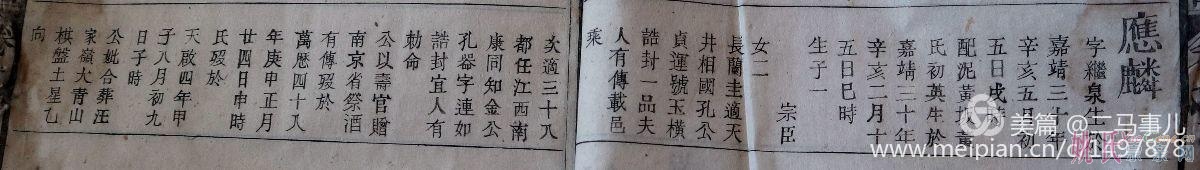 應麟
字繼泉生於
嘉靖三十年
辛亥五月初
五日戌時
配泥黃
氏初英生於
嘉靖三十年
辛亥二月十
五日巳時
生子一
宗臣
女二
長蘭圭適天
井相國孔公
貞運號玉橫
誥封一品夫
人有傳載邑
乘
次適三十八
都任江西南
康同知金公
孔器字連如
誥封宜人有
勅命
公以壽官贈
南京省祭酒
有傳歿於
萬曆四十八
年庚申正月
廿四日申時
氏歿於
天啟四年甲
子八月初九
日子時
公妣合葬汪
家嶺大青山
棋盤土星乙
向
美篇@二马事儿
www.meipian.cn/c/1497878